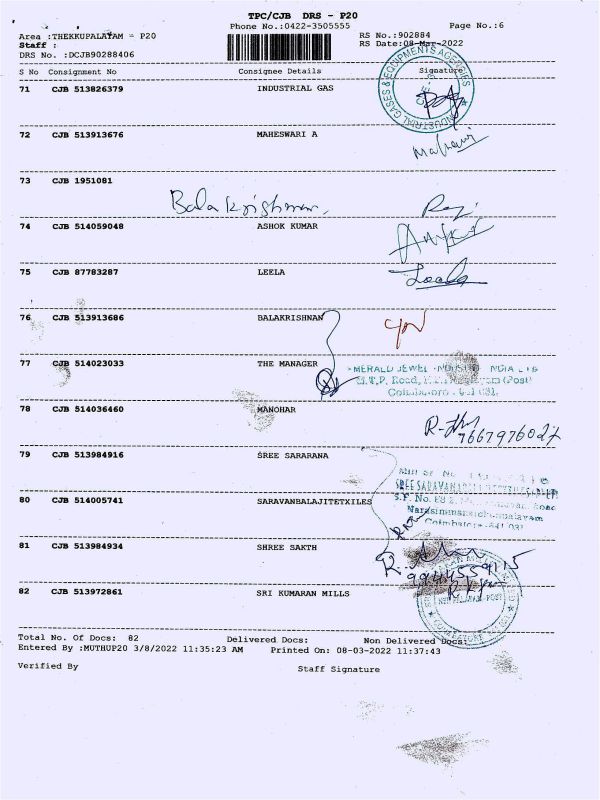 TPC/CJB DRS - P20
Phone No.:0422-3505555
Page No.:6
Area :THEKKUPALAYAM - P20
RS No.:902884
Staff :
RS Date:08-Mar-2022
DRS No. :DCJB90288406
S No Consignment No Consignee Details Signature
71 CJB 513826379 INDUSTRIAL GAS
INDUSTRIAL GASES & EQUIPMENTS AGENCIES
72 CJB 513913676 MAHESWARI A
73 CJB 1951081
Balakrishnan
74 CJB 514059048 ASHOK KUMAR
75 CJB 87783287 LEELA
Leela
76 CJB 513913686 BALAKRISHNAN
77 CJB 514023033 THE MANAGER
M.T.P. Road,
Coimbatore - 641 031.
78 CJB 514036460 MANOHAR
7667976027
79 CJB 513984916 SREE SARARANA
80 CJB 514005741 SARAVANBALAJITETXILES
S.F. No.
Coimbatore-641 031
81 CJB 513984934 SHREE SAKTH
82 CJB 513972861 SRI KUMARAN MILLS
Total No. Of Docs: 82 Delivered Docs: Non Delivered Docs:
Entered By :MUTHUP20 3/8/2022 11:35:23 AM Printed On: 08-03-2022 11:37:43
Verified By Staff Signature